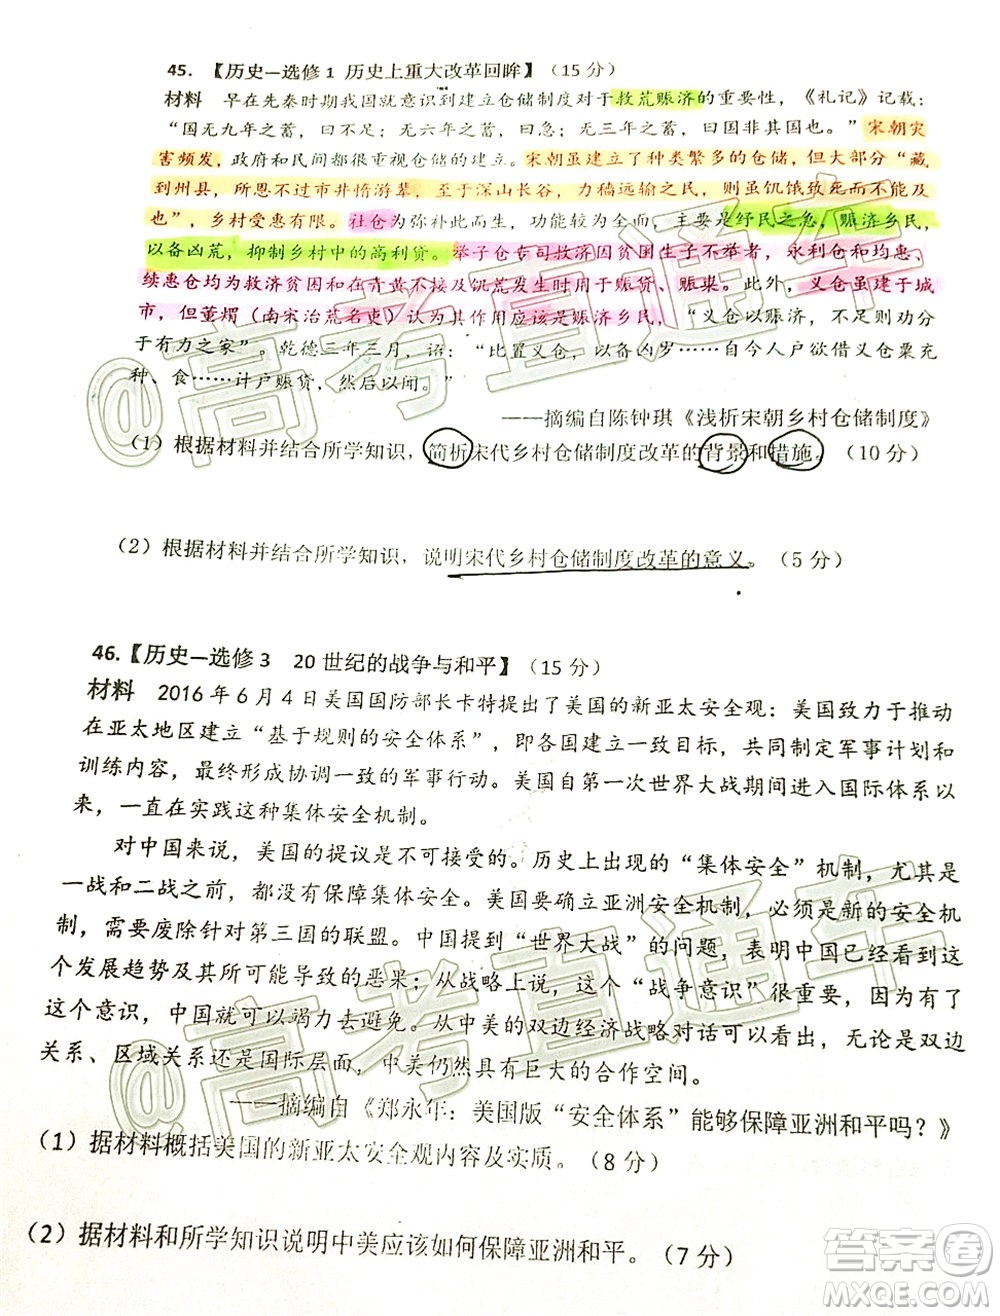 45. 【历史—选修1 历史上重大改革回眸】（15 分）
材料 早在先秦时期我国就意识到建立仓储制度对于救荒赈济的重要性，《礼记》记载：
“国无九年之蓄，曰不足；无六年之蓄，曰急；无三年之蓄，曰国非其国也。”宋朝灾
害频发，政府和民间都很重视仓储的建立。宋朝虽建立了种类繁多的仓储，但大部分“藏
到州县，所恩不过市井惰游辈，至于深山长谷，力穑远输之民，则虽饥饿致死而不能及
也”，乡村受惠有限。社仓为弥补此而生，功能较为全面，主要是纾民之急，赈济乡民，
以备凶荒，抑制乡村中的高利贷。举子仓专司救济因贫困生子不举者，永利仓和均惠、
续惠仓均为救济贫困和在青黄不接及饥荒发生时用于赈贷、赈粜。此外，义仓虽建于城
市，但董煟（南宋治荒名吏）认为其作用应该是赈济乡民，“义仓以赈济，不足则劝分
于有力之家”。乾德三年三月，诏：“比置义仓，以备凶岁……自今人户欲借义仓粟充
种、食……计户赈贷，然后以闻。”
——摘编自陈钟琪《浅析宋朝乡村仓储制度》
（1）根据材料并结合所学知识，简析宋代乡村仓储制度改革的背景和措施。（10 分）
（2）根据材料并结合所学知识，说明宋代乡村仓储制度改革的意义。（5 分）
46.【历史—选修 3 20 世纪的战争与和平】（15 分）
材料 2016 年 6 月 4 日美国国防部长卡特提出了美国的新亚太安全观：美国致力于推动
在亚太地区建立“基于规则的安全体系”，即各国建立一致目标，共同制定军事计划和
训练内容，最终形成协调一致的军事行动。美国自第一次世界大战期间进入国际体系以
来，一直在实践这种集体安全机制。
对中国来说，美国的提议是不可接受的。历史上出现的“集体安全”机制，尤其是
一战和二战之前，都没有保障集体安全。美国要建立亚洲安全机制，必须是新的安全机
制，需要废除针对第三国的联盟。中国提到“世界大战”的问题，表明中国已经看到这
个发展趋势及其所可能导致的恶果；从战略上说，这个“战争意识”很重要，因为有了
这个意识，中国就可以竭尽全力去避免。从中美的双边经济战略对话可以看出，无论是双边
关系、区域关系还是国际层面，中美仍然具有巨大的合作空间。
——摘编自《郑永年：美国版“安全体系”能够保障亚洲和平吗？》
（1）据材料概括美国的新亚太安全观内容及实质。（8 分）
（2）据材料和所学知识说明中美应该如何保障亚洲和平。（7 分）
@高考直通车
@高考直通车
答案卷
MXQE.COM